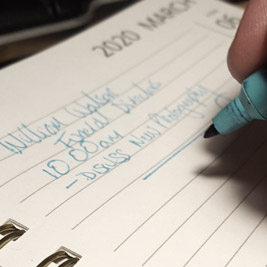 2020 MARCH 06
William Watson
Director
10:00am
- Discuss New Photographs